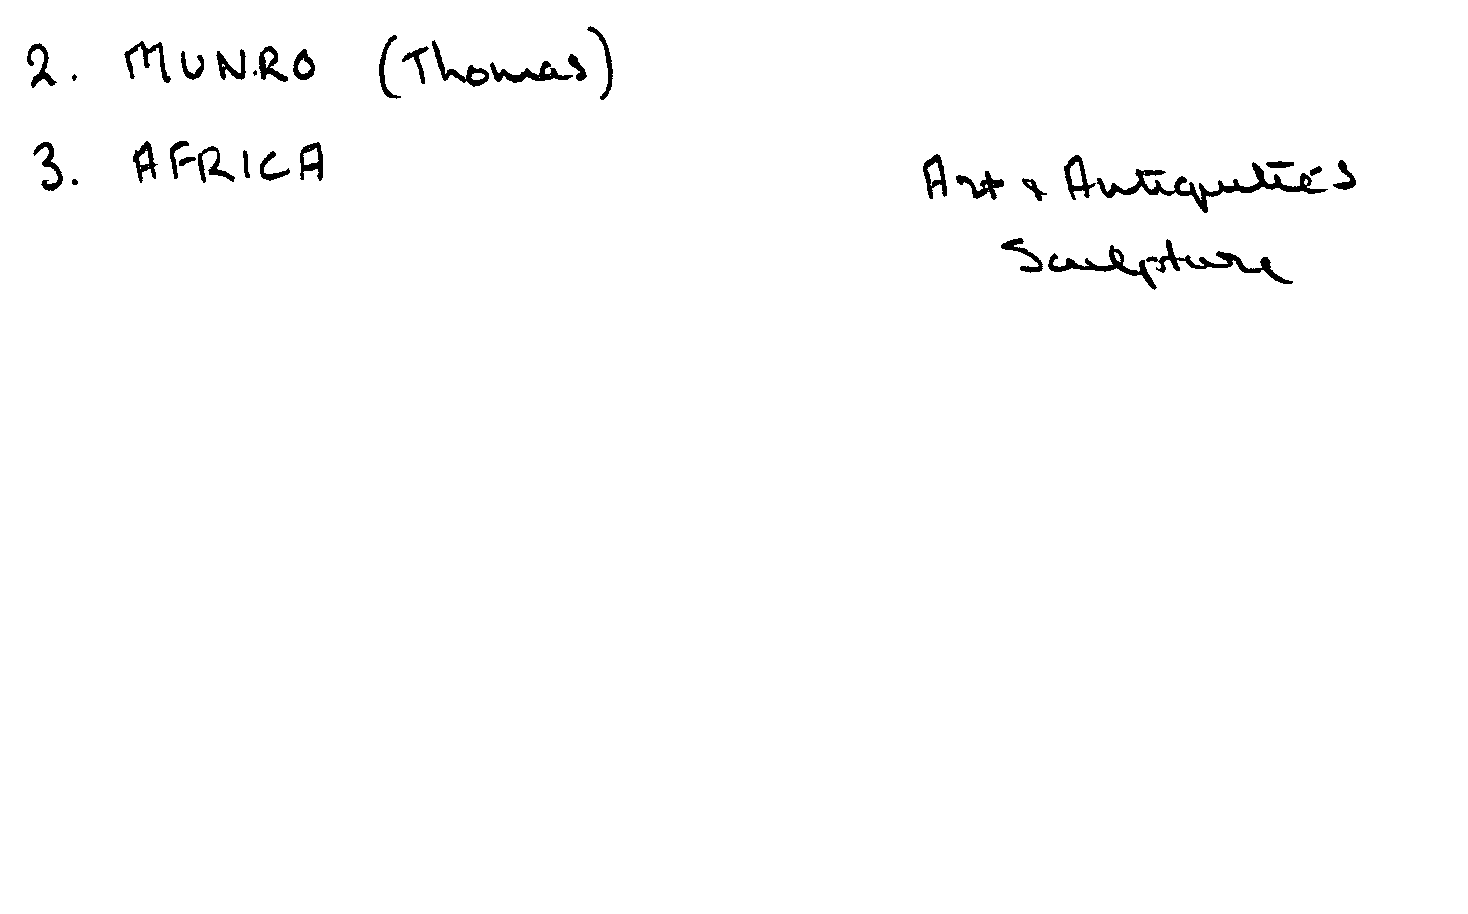 2. MUNRO (Thomas)
3. AFRICA
Art & Antiquities
Sculpture